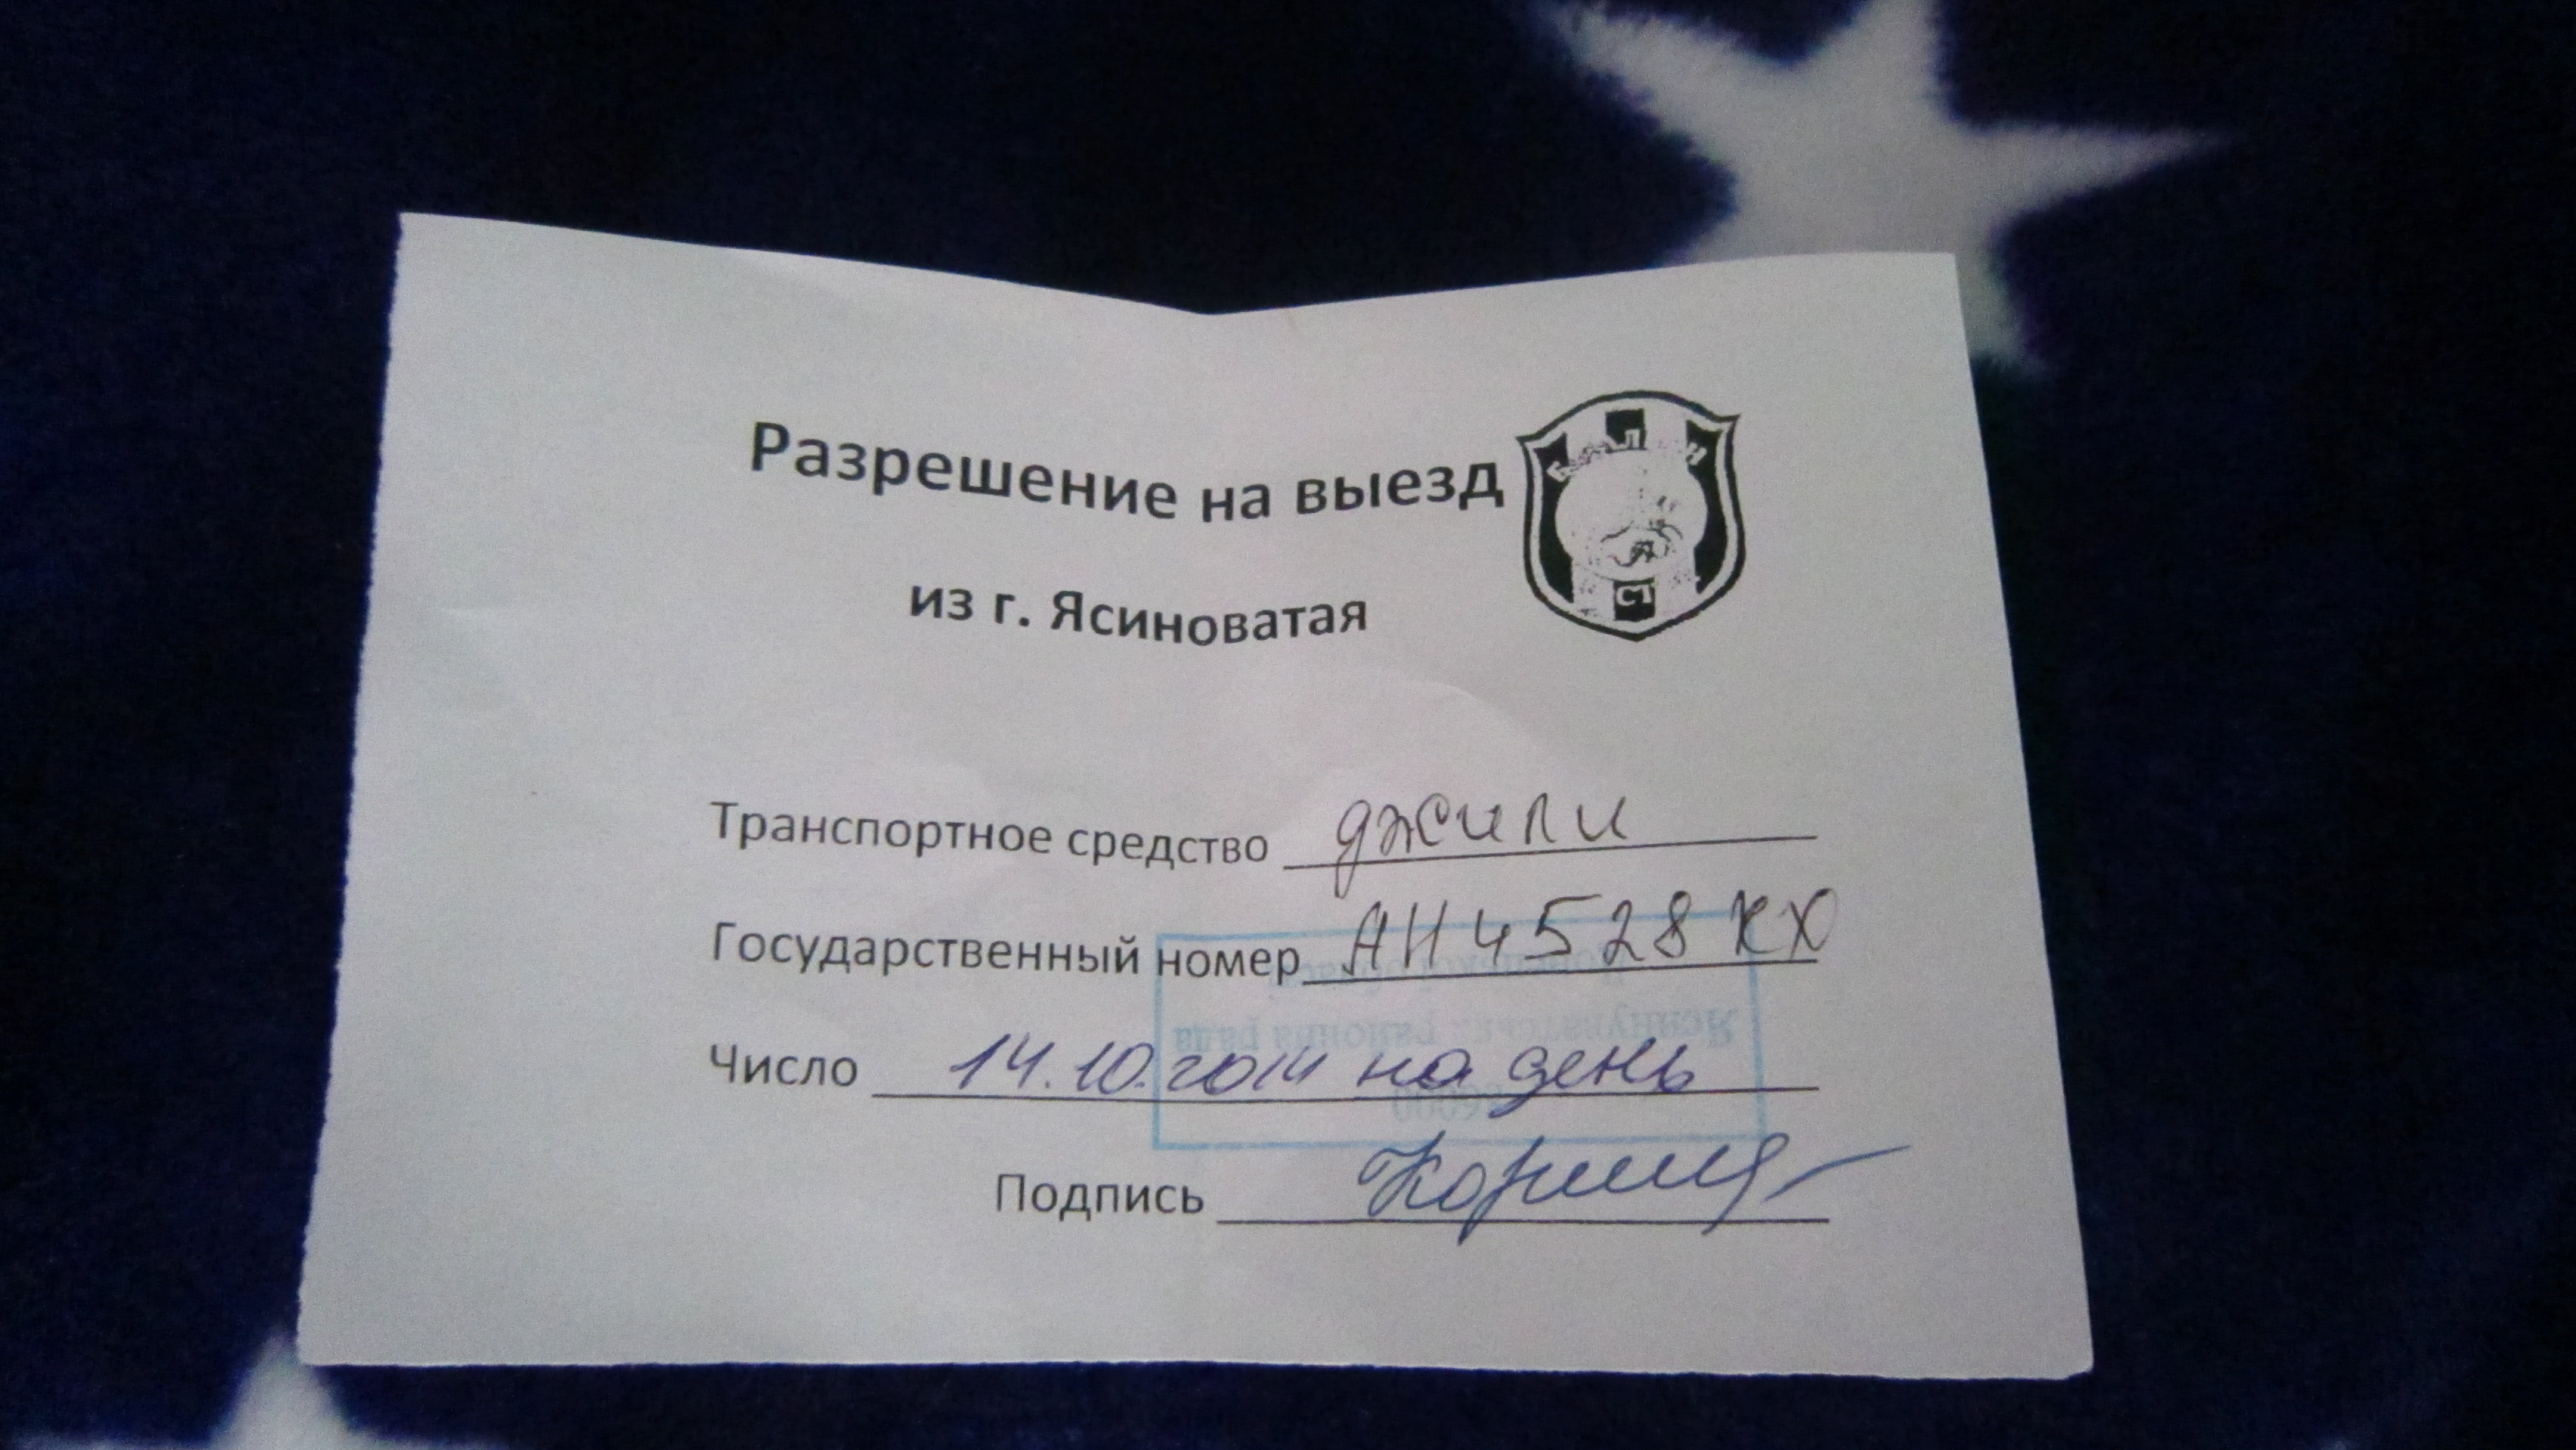 Разрешение на выезд
из г. Ясиноватая
СТ
Транспортное средство джили
Государственный номер АН 4528 КХ
Число 14.10.2014 на день
Ясинуватська районна рада
Подпись